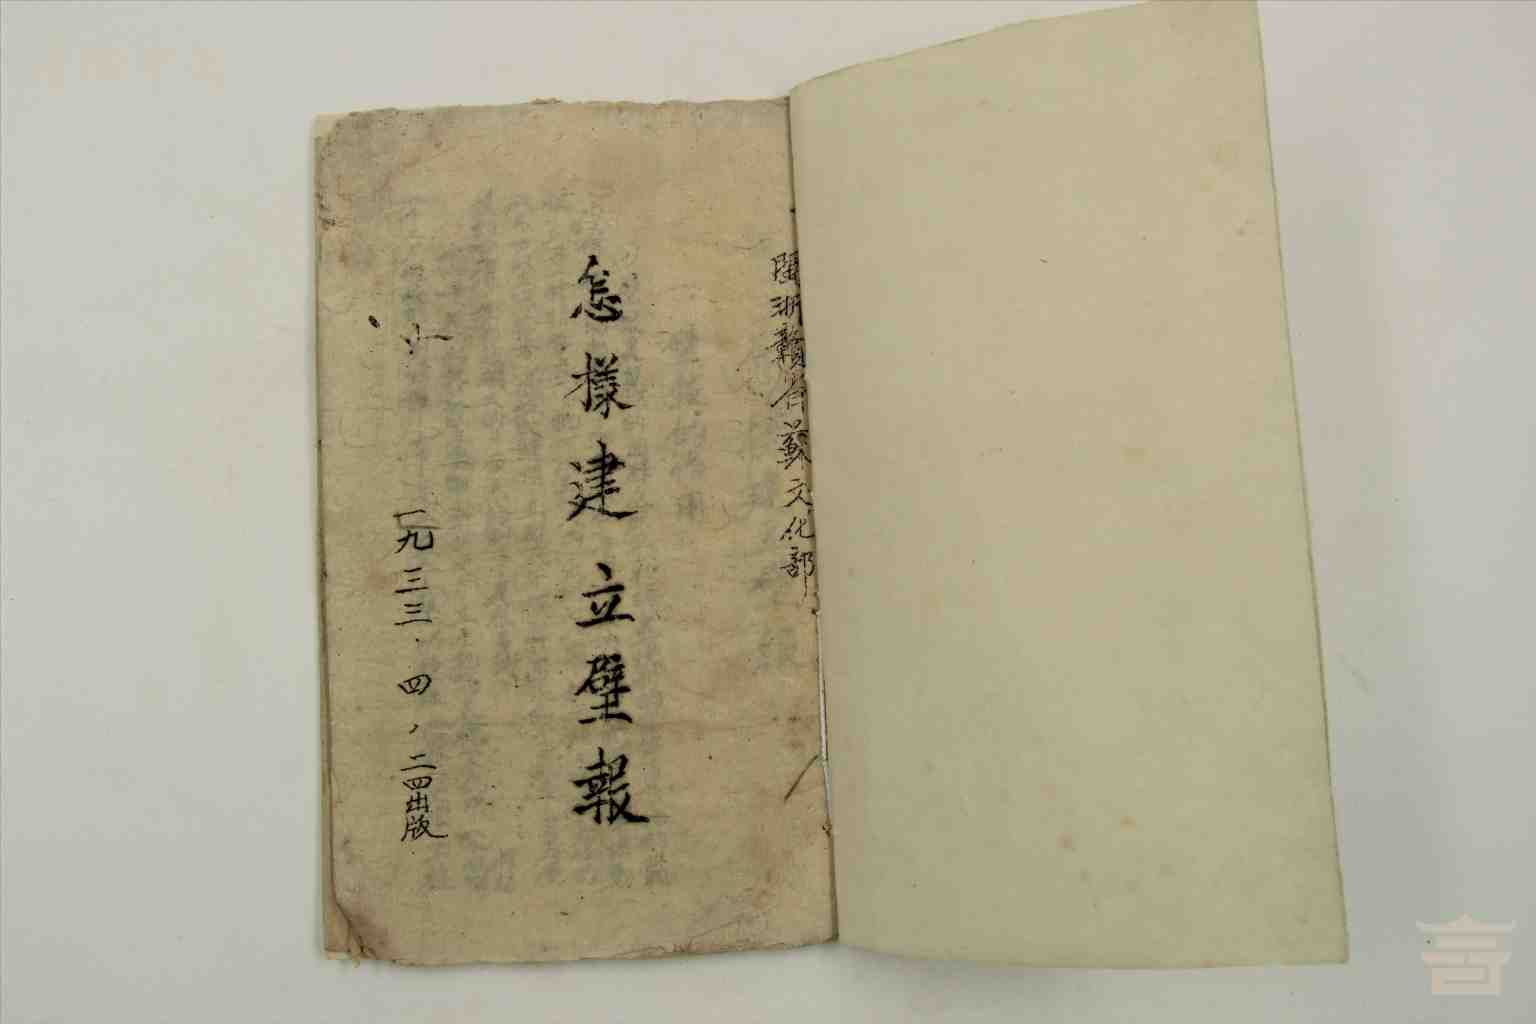 閩浙贛省蘇文化部
怎樣建立壁報
一九三三．四，二四出版